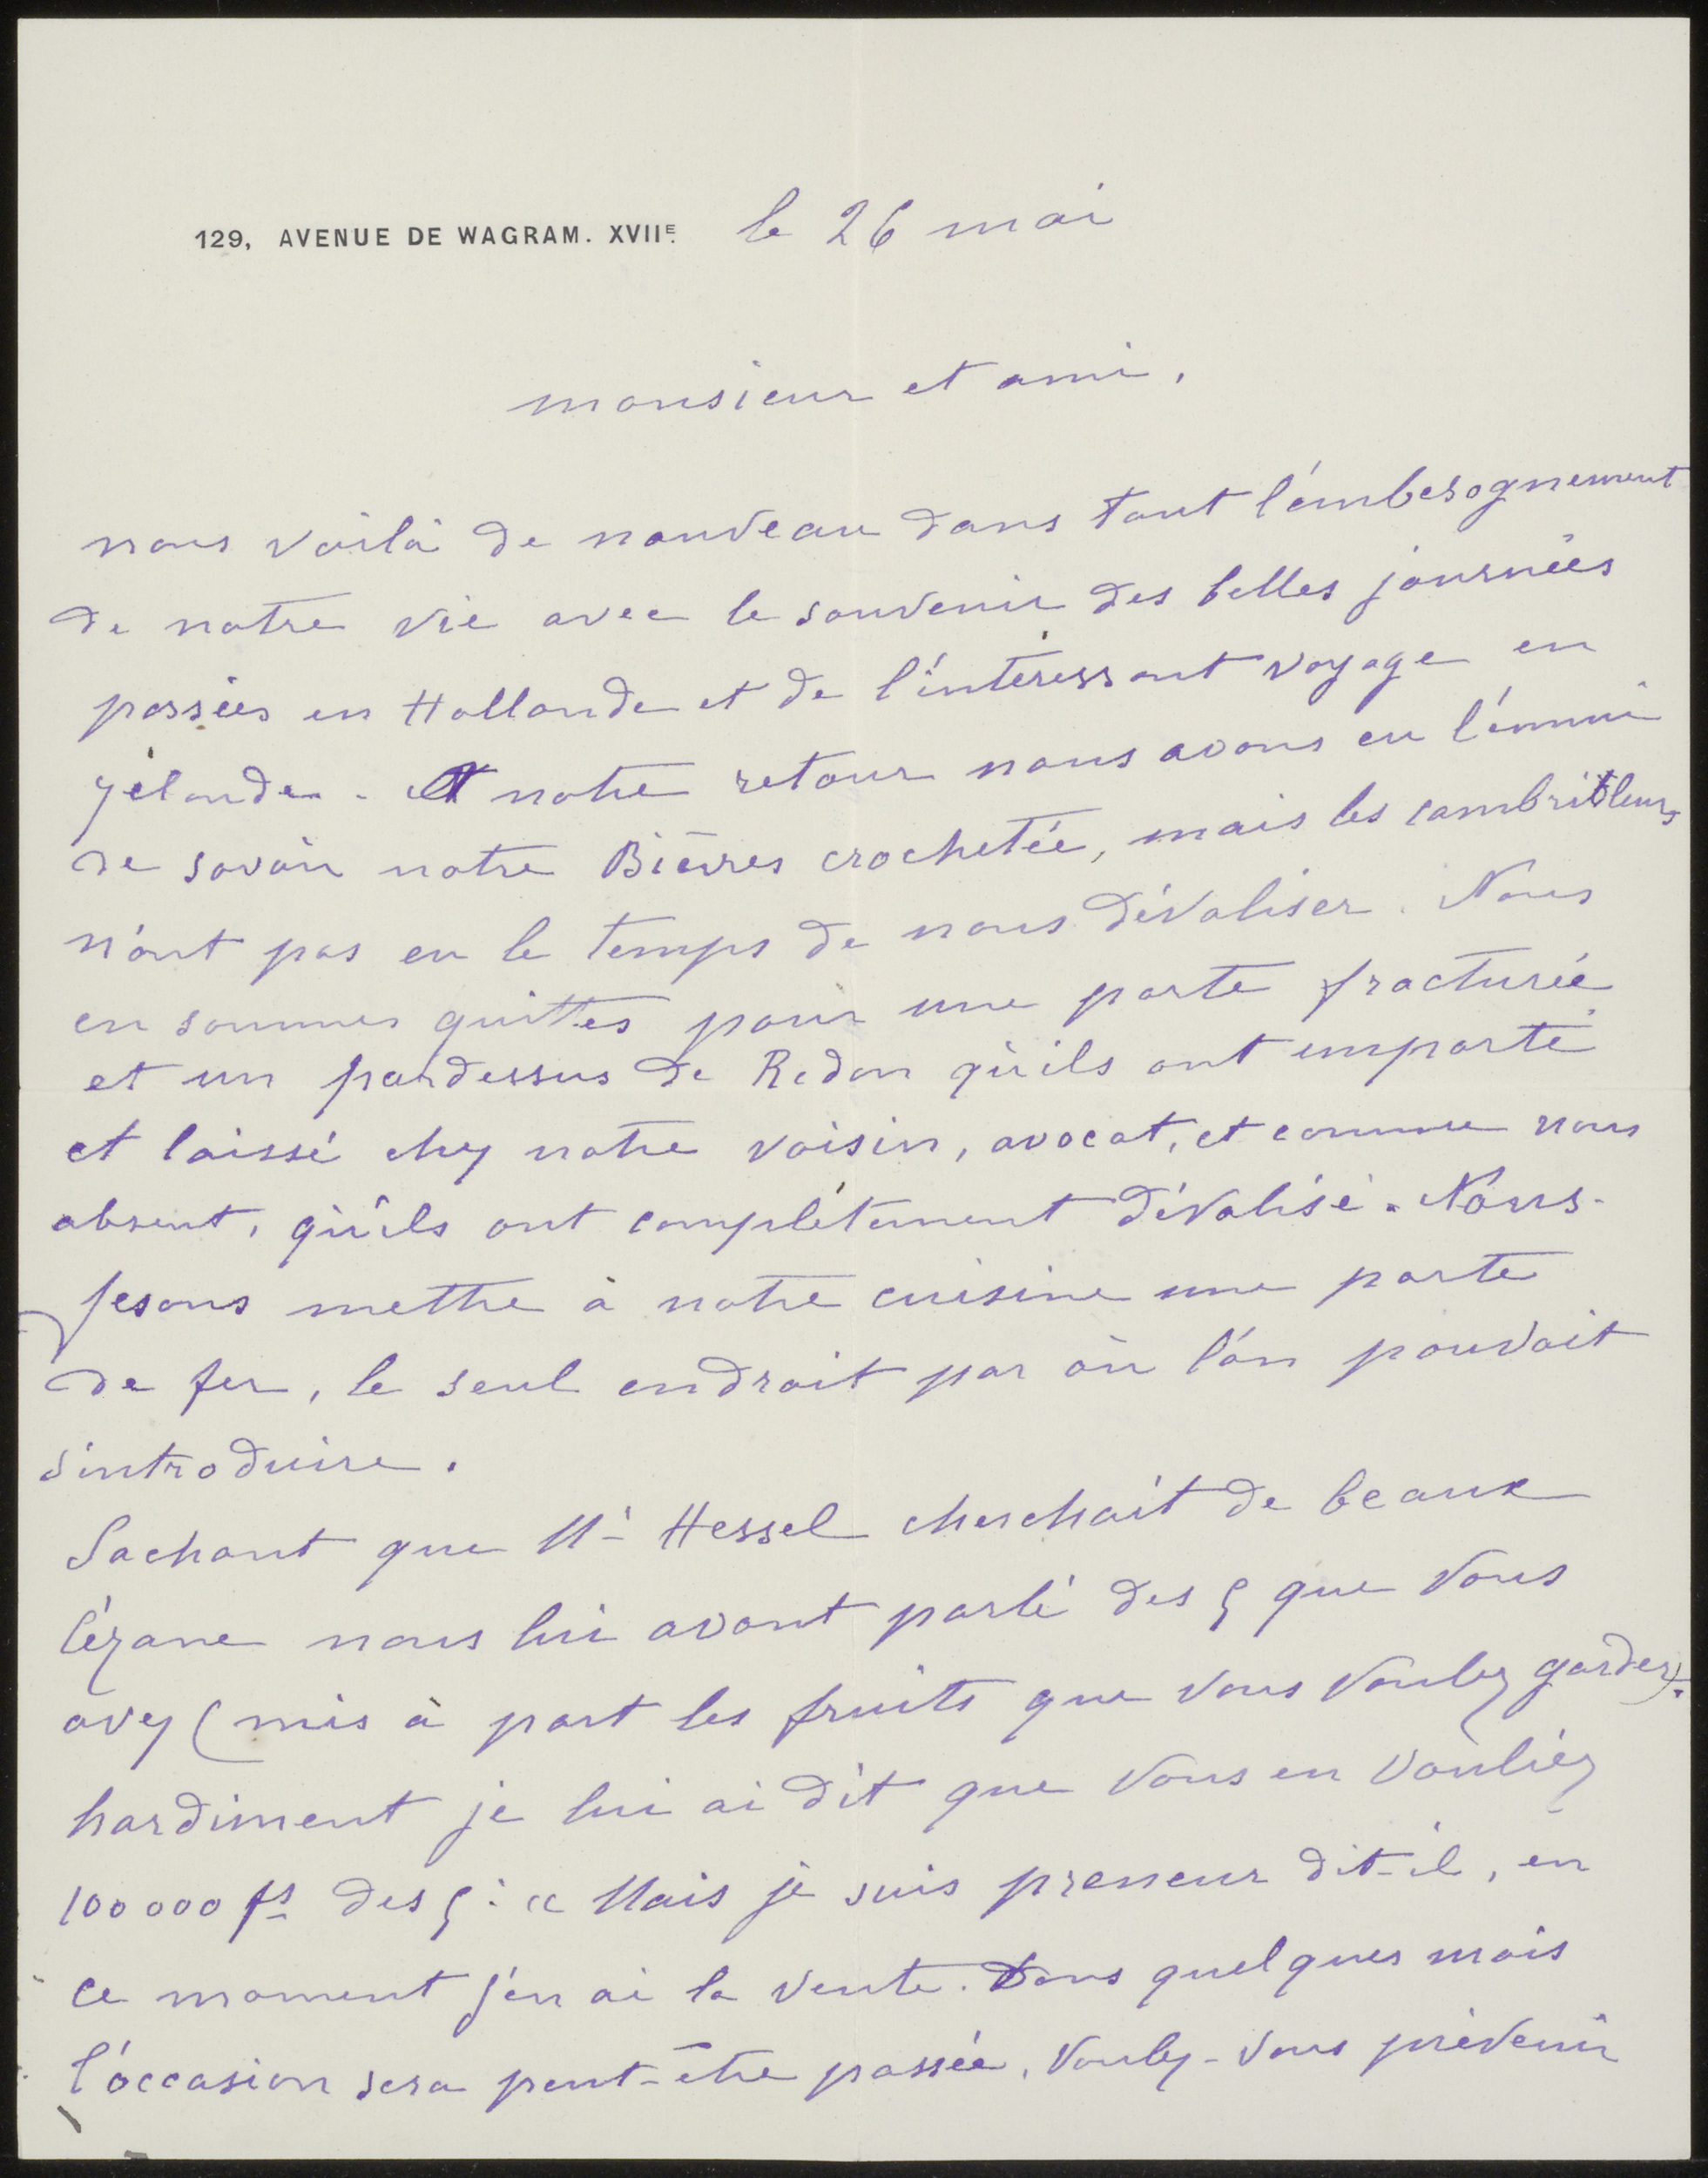 129, AVENUE DE WAGRAM. XVIIE. le 26 mai
monsieur et ami,
nous voilà de nouveau dans tout l'embesognement
de notre vie avec le souvenir des belles journées
passées en Hollande et de l'intéressant voyage en
zélande. A notre retour nous avons eu l'ennui
de savoir notre Bièvres crochetée, mais les cambrioleurs
n'ont pas eu le temps de nous dévaliser. Nous
en sommes quittes pour une porte fracturée
et un pardessus de Redon qu'ils ont emporté
et laissé chez notre voisin, avocat, et comme nous
absent, qu'ils ont complètement dévalisé. Nous
fesons mettre à notre cuisine une porte
de fer, le seul endroit par où l'on pouvait
s'introduire.
Sachant que Mr Hessel cherchait de beaux
Cézane nous lui avont parlé des 5 que vous
avez (mis à part les fruits que vous voulez garder).
hardiment je lui ai dit que vous en vouliez
100 000 fs des 5: « Mais je suis preneur dit-il, en
ce moment j'en ai la vente. Dans quelques mois
l'occasion sera peut-être passée. Voulez-vous prévenir